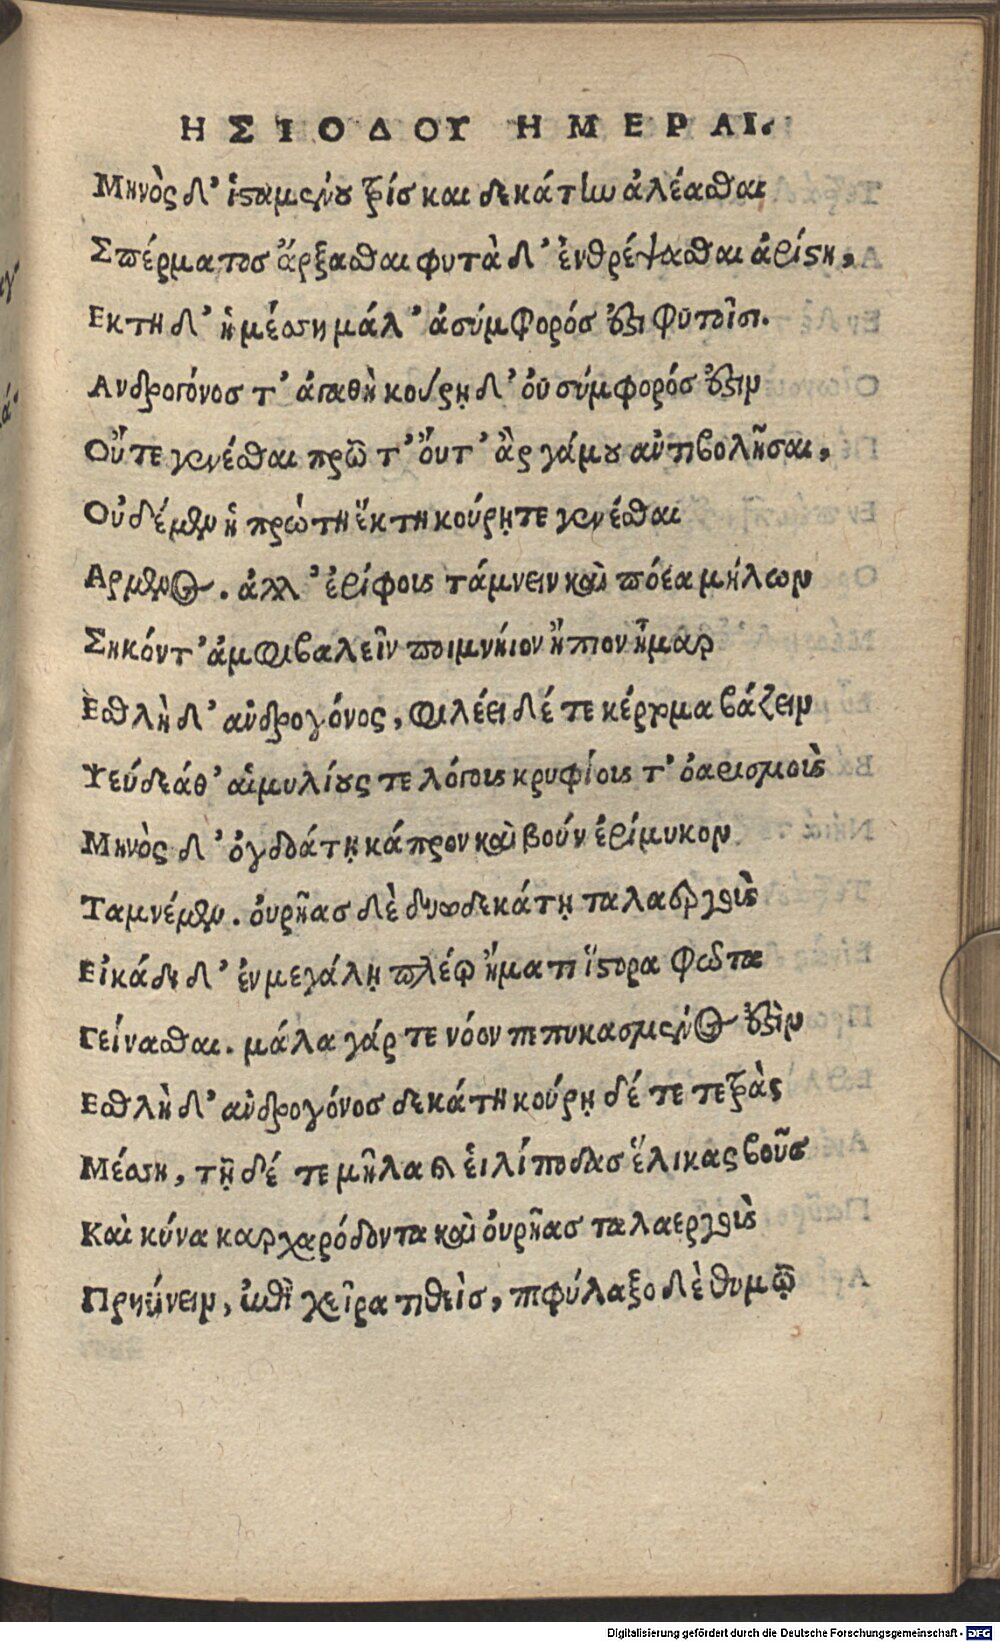 ΗΣΙΟΔΟΥ ΗΜΕΡΑΙ.
Μηνὸς δ' ἱσταμένου τρίς και δεκάτην ἀλέασθαι
Σπέρματοσ ἄρξασθαι φυτὰ δ' ἐνθρέψασθαι ἀρίστη,
Εκτη δ' ἡ μέσση μάλ' ἀσύμφορόσ ἐστι φυτοῖσι.
Ανδρογόνοσ τ' ἀγαθὴ κούρῃ δ' ὀυ σύμφορόσ ἐστιν
Οὔτε γενέσθαι πρῶτ' ὄυτ' ἂρ γάμου ἀντιβολῆσαι,
Ουδέμὲν ἡ πρώτη ἕκτη κούρῃτε γενέσθαι
Αρμενος. ἀλλ' ἐρίφοις τάμνειν καὶ πόεα μήλων
Σηκόντ' ἀμφιβαλεῖν ποιμνήιον ἤπιον ἦμαρ
Εσθλὴ δ' ἀνδρογόνος, φιλέει δέ τε κέρτομα βάζειν
Ψεύδεάθ' αἱμυλίους τε λόγοις κρυφίοις τ' ὀαρισμοὶς
Μηνὸς δ' ὀγδοάτῃ κάπρον καὶ βούν ἐρίμυκον
Ταμνέμεν. ὀυρῆασ δὲ δυωδεκάτῃ ταλαεργοὶς
Εἰκάδι δ' ἐν μεγάλῃ πλέῳ ἤματι ἵστορα φῶτα
Γείνασθαι. μάλα γάρ τε νόον πεπυκασμένος ἐστὶν
Εσθλὴ δ' ἀνδρογόνοσ δεκάτη κούρῃ δέ τε τετρὰς
Μέσση, τῇ δέ τε μῆλα καὶ ἐιλίποδασ ἕλικας βοῦσ
Καὶ κύνα καρχαρόδοντα καὶ ὀυρῆασ ταλαεργοὶς
Πρηΰνειν, ἐπὶ χεῖρα τιθεὶσ, πεφύλαξο δὲ θυμῷ
Digitalisierung gefördert durch die Deutsche Forschungsgemeinschaft - DFG